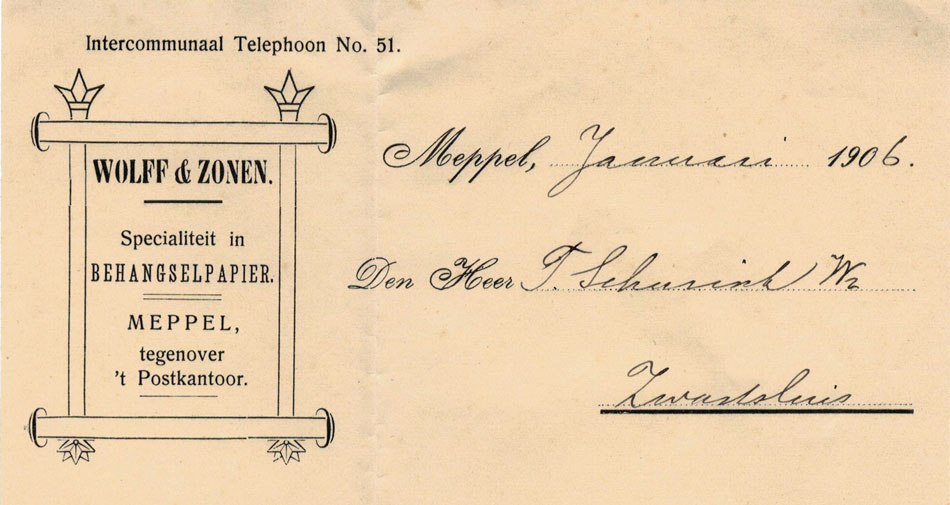 Intercommunaal Telephoon No. 51.
WOLFF & ZONEN.
Specialiteit in
BEHANGSELPAPIER.
MEPPEL,
tegenover
't Postkantoor.
Meppel, Januari 1906.
Den Heer T. Schurink Wz
Zwartsluis